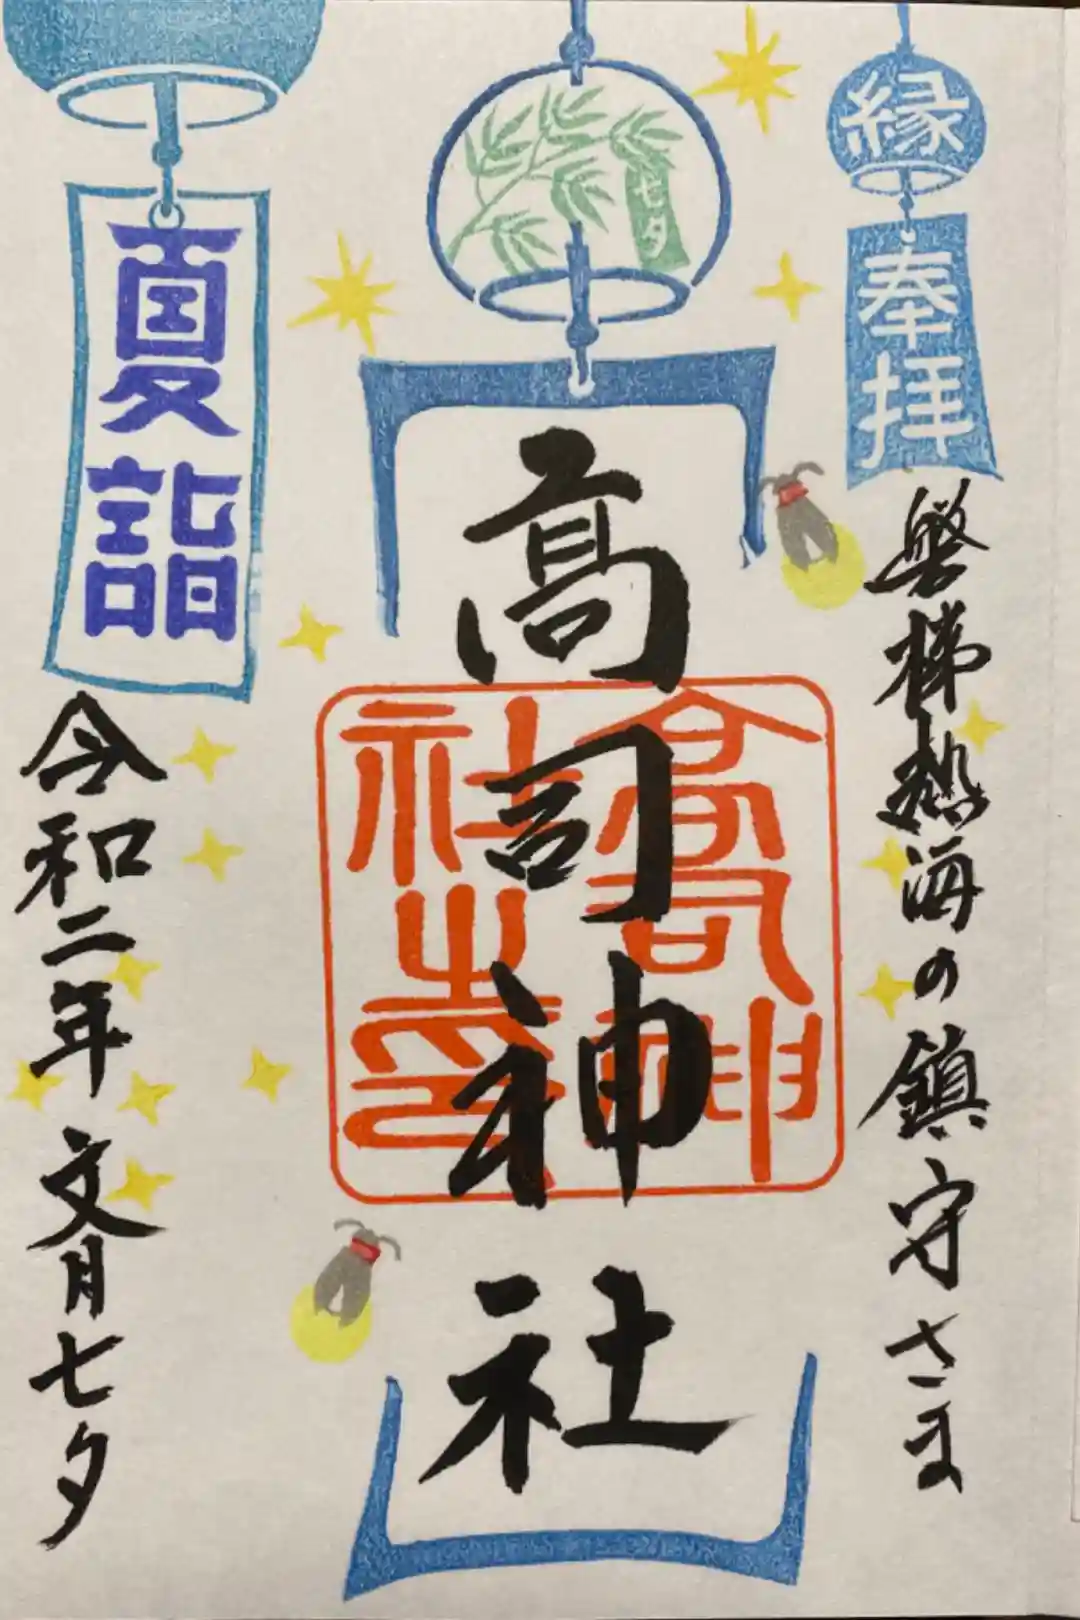 縁
奉拝
磐梯熱海の鎮守さま
七夕
高司神社
高司神
社之印
夏詣
令和二年 文月七夕